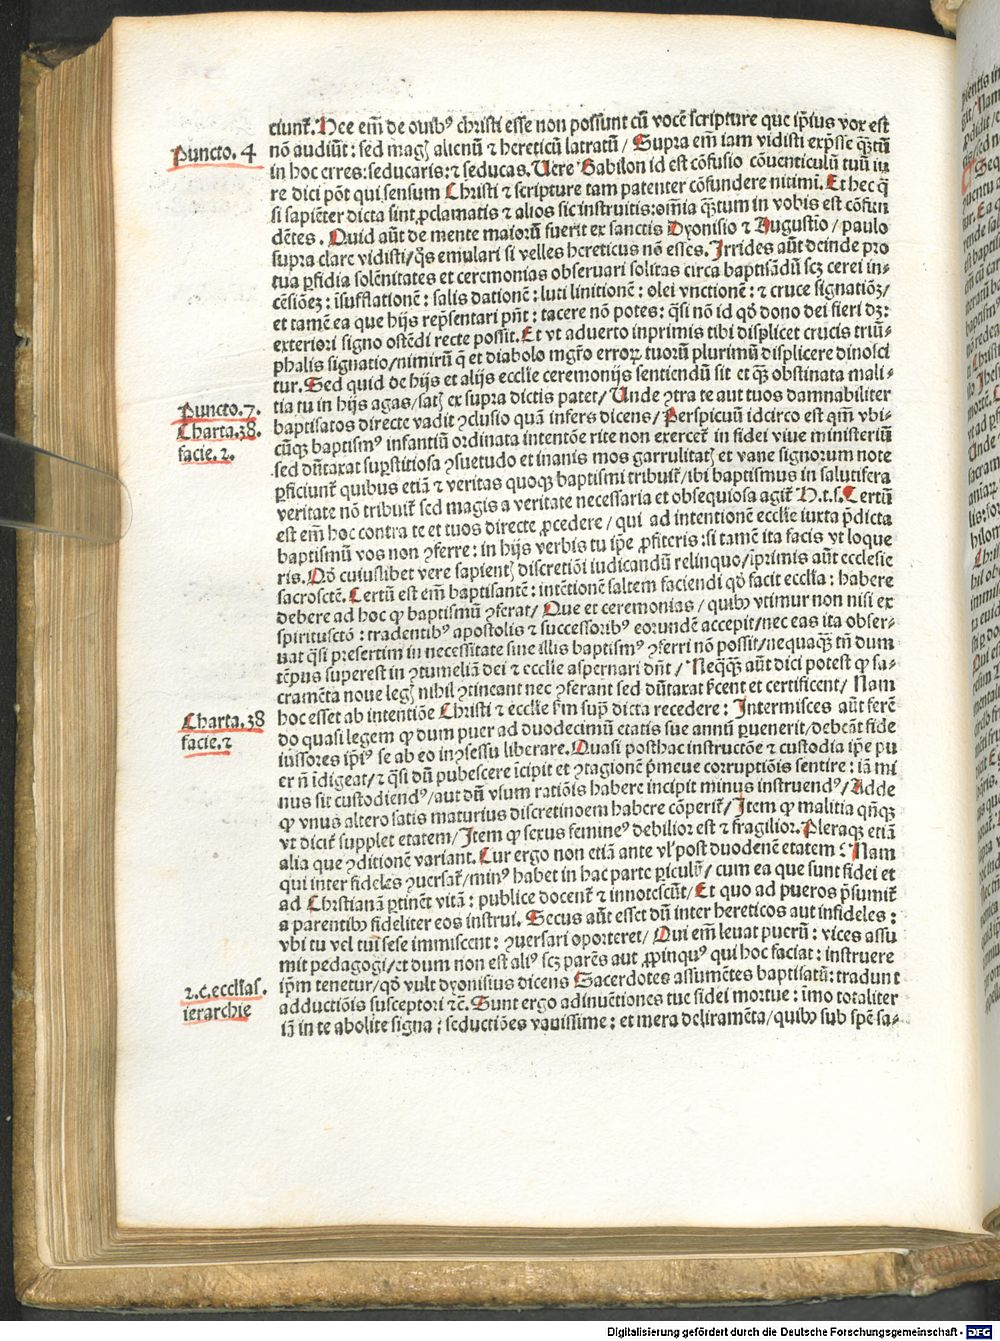 ciunt᷑. Nec em̄ de ovibꝰ christi esse non possunt cū vocē scripture que ip̄ius vox est
Puncto. 4
nō audiūt: sed magꝭ alienū ⁊ hereticū latratū / Supra em̄ iam vidisti exp̄sse qꝫtū
in hoc erres: seducaris: ⁊ seducas. Uere Babilon id est cōfusio cōuenticulū tuū iu
re dici pōt qui sensum Christi ⁊ scripture tam patenter cōfundere nitimī. Et hec q̄
si sapiēter dicta sint ꝓclamatis ⁊ alios sic instruitis: om̄ia qꝫtum in vobis est cōfun
dētes. Quid aūt de mente maiorū fuerit ex sanctis Dyonisio ⁊ Augustīo / paulo
supra clare vidisti / q̄s emulari si velles hereticus nō esses. Irrides aūt deinde pro
tua ꝑfidia solēnitates et ceremonias obseruari solitas circa baptisādū scꝫ cerei in-
cēsiōeꝫ: īsufflationē: salis dationē: luti linitionē: olei vnctionē: ⁊ cruce signatiōꝫ/
et tamē ea que hijs rep̄sentari pn̄t: tacere nō potes: q̄si nō id qd̄ dono dei fieri dꝫ:
exteriori signo ostēdi recte possit. Et vt aduerto inprimis tibi displicet crucis triū-
phalis signatio / nimirū q̄ et diabolo mgr̄o erroꝝ tuorū plurimū displicere dinosci
tur. Sed quid de hijs et alijs eccl̄ie ceremonijs sentiendū sit et qꝫ obstinata mali-
Puncto. 7.
tia tu in hijs agas / satꝭ ex supra dictis patet / Unde ꝯtra te aut tuos damnabiliter
Charta. 38.
baptisatos directe vadit ꝯclusio quā infers dicens / Perspicuū idcirco est qm̄ vbi-
facie. 2.
cūqꝫ baptismꝰ infantiū ordinata intentōe rite non exercet᷑ in fidei viue ministeriū
sed dūtaxat suꝑstitiosa ꝯsuetudo et inanis mos garrulitatꝭ et vane signorum note
ꝑficiunt᷑ quibus etiā ⁊ veritas quoqꝫ baptismi tribuit᷑ / ibi baptismus in salutifera
veritate nō tribuit᷑ sed magis a veritate necessaria et obsequiosa agit᷑ H.t.s. Certū
est em̄ hoc contra te et tuos directe ꝓcedere / qui ad intentionē eccl̄ie iuxta p̄dicta
baptismū vos non ꝯferre: in hijs verbis tu ip̄e ꝓfiteris: si tamē ita facis vt loque
ris. Qd̄ cuiuslibet vere sapientꝭ discretiōi iudicandū relinquo / īprimis aūt ecclesie
sacrosctē. Certū est em̄ baptisantē: intētionē saltem faciendi qd̄ facit eccl̄ia: habere
debere ad hoc ꝙ baptismū ꝯferat / Que et ceremonias / quibꝫ vtimur non nisi ex
spiritusctō: tradentibꝰ apostolis ⁊ successoribꝰ eorundē accepit / nec eas ita obser-
uat q̄si presertim in necessitate sine illis baptismꝰ ꝯferri nō possit / nequaqꝫ tn̄ dum
tēpus superest in ꝯtumeliā dei ⁊ eccl̄ie aspernari dn̄t / Neqꝫqꝫ aūt dici potest ꝙ sa-
cramēta noue legꝭ nihil ꝯtineant nec ꝯferant sed dūtaxat ſcent et certificent / Nam
Charta. 38
hoc esset ab intentiōe Christi ⁊ eccl̄ie ſm sup̄ dicta recedere: Intermisces aūt ferē
facie. 2
do quasi legem ꝙ dum puer ad duodecimū etatis sue annū ꝑuenerit / debeāt fide
iussores ip̄iꝰ se ab eo inꝯsessu liberare. Quasi posthac instructōe ⁊ custodia ip̄e pu
er n̄ īdigeat / ⁊ q̄si dū pubescere īcipit et ꝯtagionē p̄meue corruptiōis sentire: iā mi
nus sit custodiendꝰ / aut dū vsum ratiōis habere incipit minus instruendꝰ / Adde
ꝙ vnus altero satis maturius discretinoem habere cōperit᷑ / Item ꝙ malitia qn̄qꝫ
vt dicit᷑ supplet etatem / Item ꝙ sexus femineꝰ debilior est ⁊ fragilior. Pleraqꝫ etiā
alia que ꝯditionē variant. Cur ergo non etiā ante vl' post duodenē etatem? Nam
qui inter fideles ꝯuersat᷑ / minꝰ habet in hac parte ꝑiculū / cum ea que sunt fidei et
ad Chrstianā ꝑtinēt vitā: publice docent᷑ ⁊ innotescūt / Et quo ad pueros p̄sumit᷑
a parentibꝫ fideliter eos instrui. Secus aūt esset dū inter hereticos aut infideles:
vbi tu vel tui sese immiscent: ꝯuersari oporteret / Qui em̄ leuat puerū: vices assu
mit pedagogi / et dum non est aliꝰ scꝫ parēs aut ꝓpinquꝰ qui hoc faciat: instruere
2. c. eccl̄ias.
ip̄m tenetur / qd̄ vult dyonisius dicens Sacerdotes assumētes baptisatū: tradunt
ierarchie
adductiōis susceptori ⁊c. Sunt ergo adinuētiones tue fidei mortue: īmo totaliter
iā in te abolite signa: seductiōes vanissime: et mera deliramēta / quibꝫ sub spē sa-
Digitalisierung gefördert durch die Deutsche Forschungsgemeinschaft - DFG